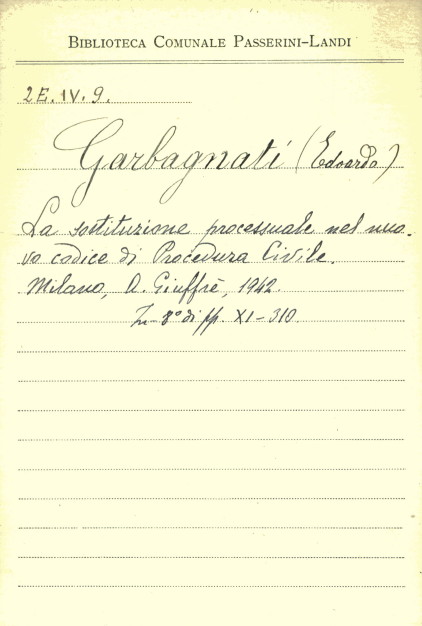 BIBLIOTECA COMUNALE PASSERINI-LANDI
2E. IV. 9.
Garbagnati (Edoardo)
La sostituzione processuale nel nuo-
vo codice di Procedura Civile.
Milano, A. Giuffrè, 1942.
In-8° di pp. XI-310.